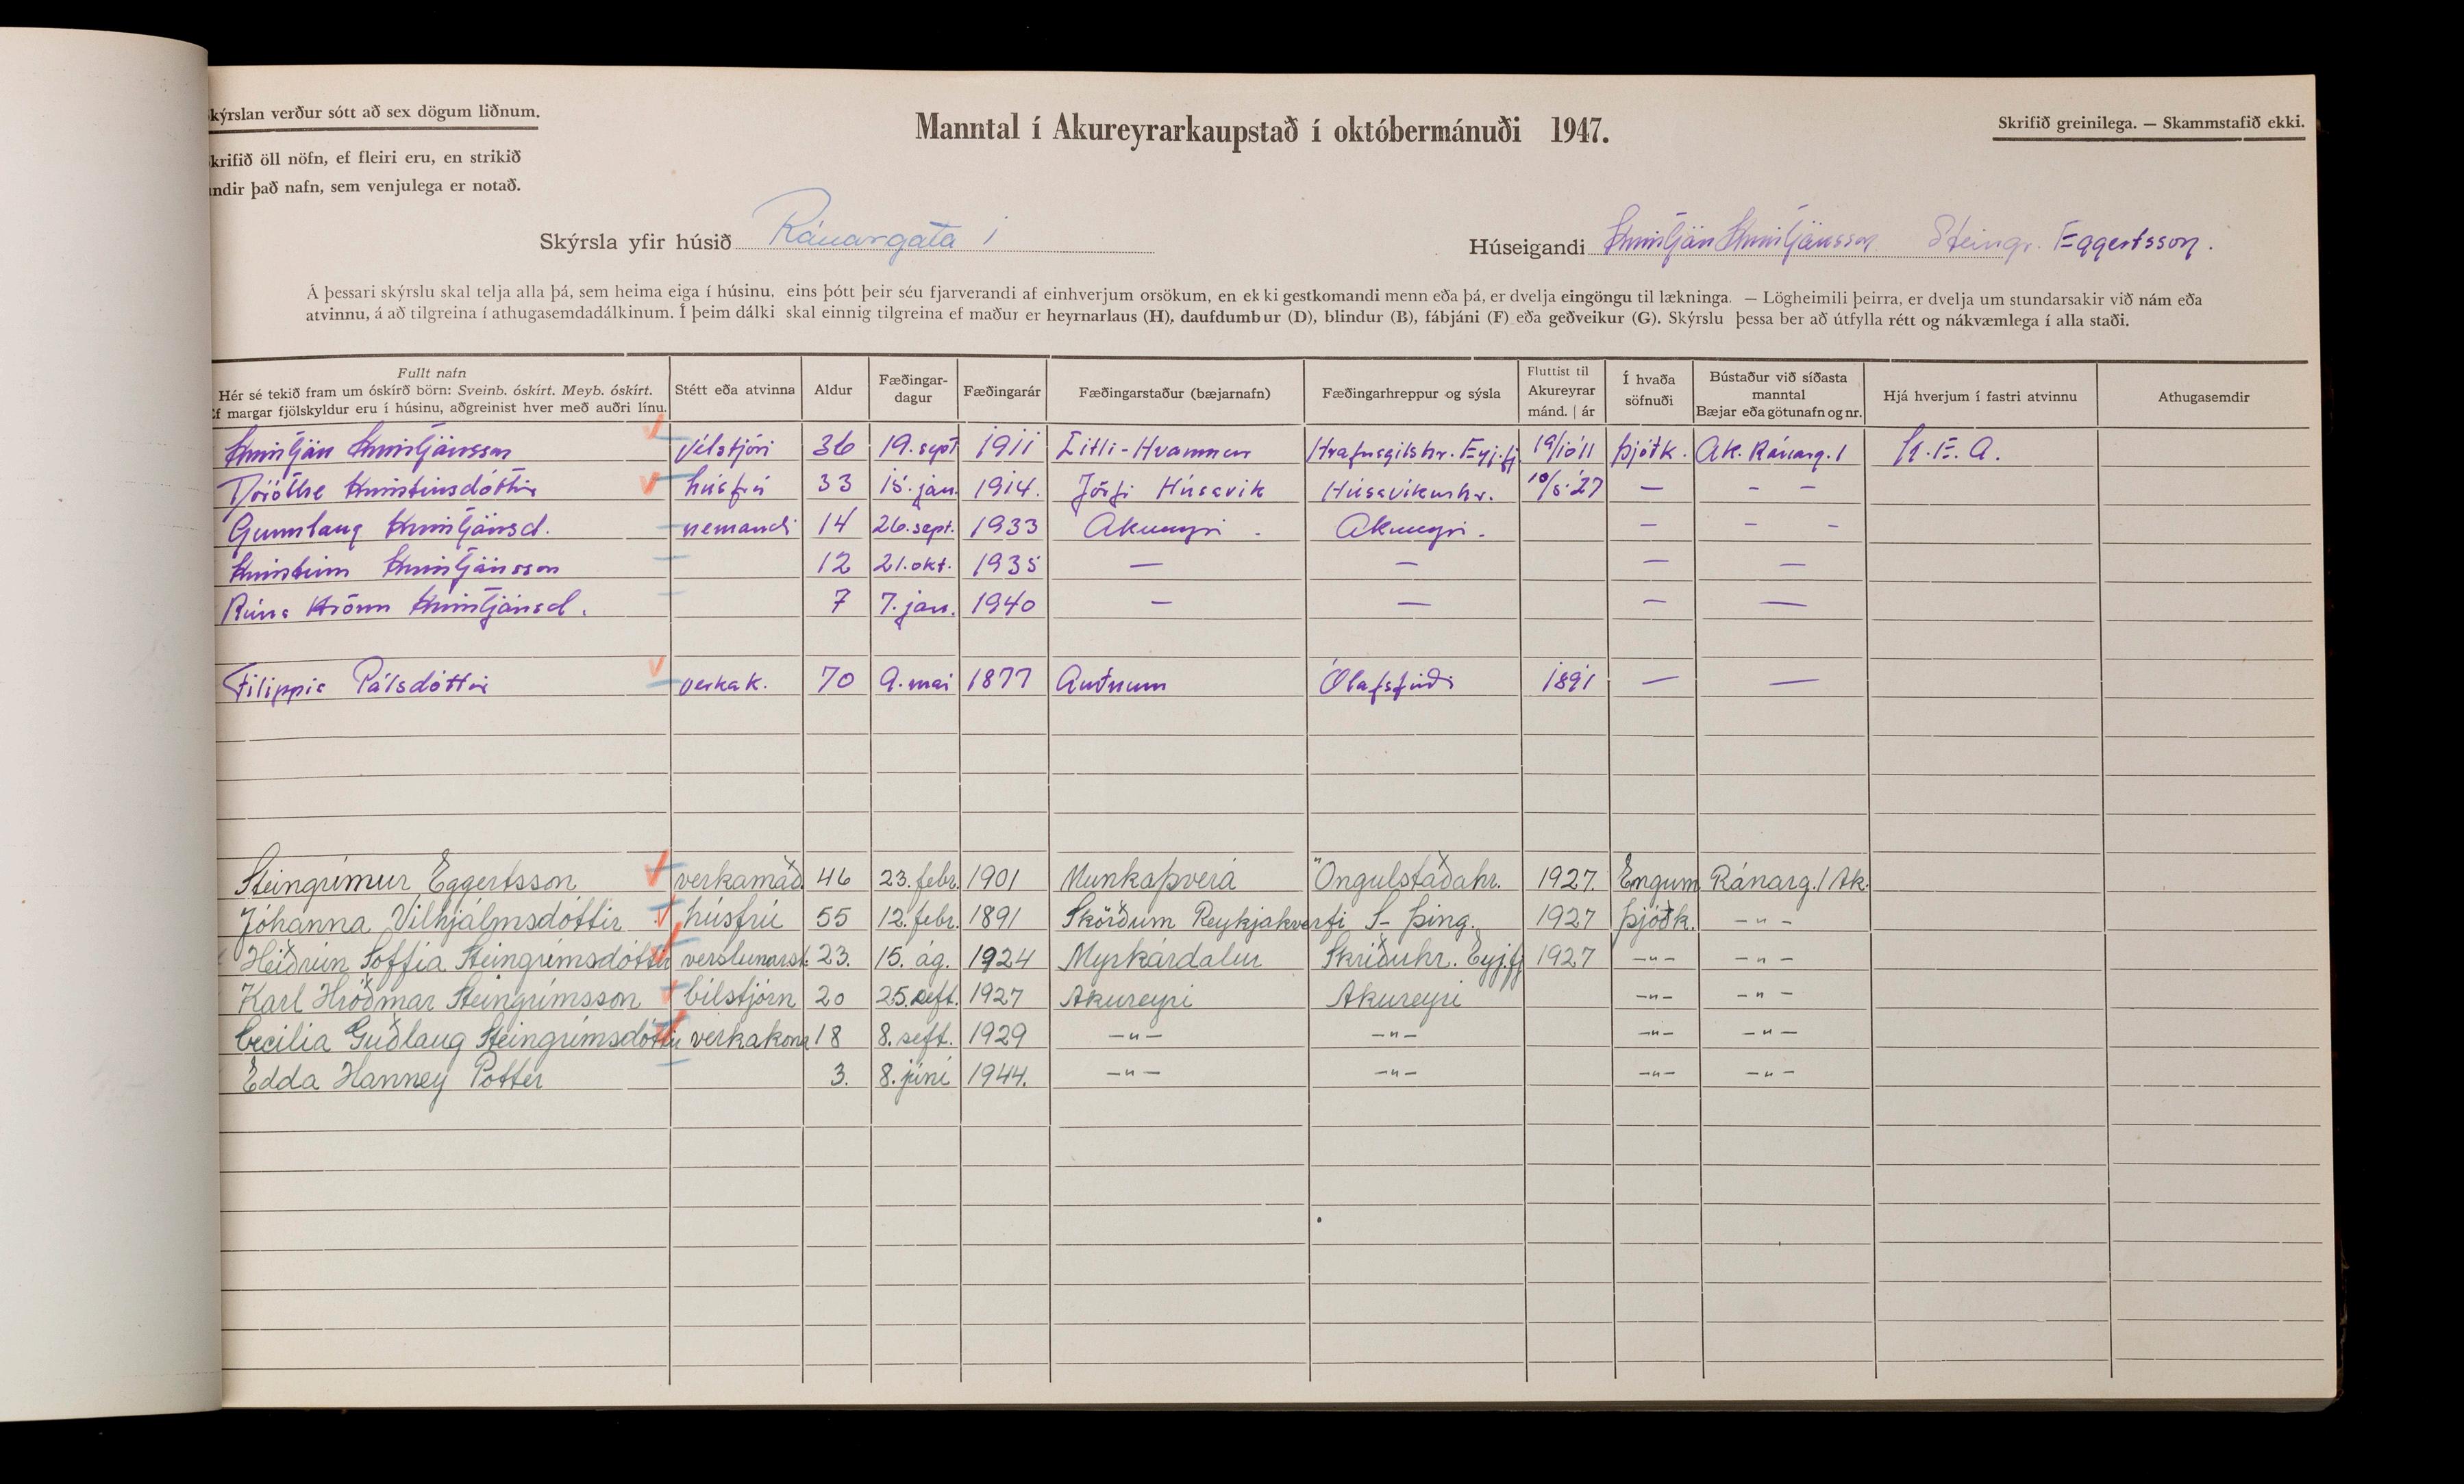 kýrslan verður sótt að sex dögum liðnum.
Manntal í Akureyrarkaupstað í októbermánuði 1947.
Skrifið greinilega. — Skammstafið ekki.
krifið öll nöfn, ef fleiri eru, en strikið
ndir það nafn, sem venjulega er notað.
Skýrsla yfir húsið Ránargata 1
Húseigandi Kristján Kristjánsson Steingr. Eggertsson.
Á þessari skýrslu skal telja alla þá, sem heima eiga í húsinu, eins þótt þeir séu fjarverandi af einhverjum orsökum, en ekki gestkomandi menn eða þá, er dvelja eingöngu til lækninga. — Lögheimili þeirra, er dvelja um stundarsakir við nám eða
atvinnu, á að tilgreina í athugasemdadálkinum. Í þeim dálki skal einnig tilgreina ef maður er heyrnarlaus (H), daufdumbur (D), blindur (B), fábjáni (F) eða geðveikur (G). Skýrslu þessa ber að útfylla rétt og nákvæmlega í alla staði.
Fullt nafn Hér sé tekið fram um óskírð börn: Sveinb. óskírt. Meyb. óskírt. f margar fjölskyldur eru í húsinu, aðgreinist hver með auðri línu. Stétt eða atvinna Aldur Fæðingar-dagur Fæðingarár Fæðingarstaður (bæjarnafn) Fæðingarhreppur og sýsla Fluttist til Akureyrar mánd. | ár Í hvaða söfnuði Bústaður við síðasta manntal Bæjar eða götunafn og nr. Hjá hverjum í fastri atvinnu Athugasemdir
Kristján Kristjánsson Vélstjóri 36 19. sept 1911 Litli-Hvammur Hrafnagilshr. Eyj.fj. 19/10 11 Þjóðk. Ak. Ránarg. 1 K.E.A.
Dóróthe Kristinsdóttir húsfrú 33 15. jan. 1914. Jörfi Húsavik Húsavíkurhr. 10/5 '27 — – –
Gunnlaug Kristjánsd. nemandi 14 26. sept. 1933 Akureyri. Akureyri. — – –
Kristinn Kristjánsson 12 21. okt. 1935 — — — —
Rúna Hrönn Kristjánsd. 7 7. jan. 1940 — — — —
Filippia Pálsdóttir verkak. 70 9. mai 1877 Auðnum Ólafsfirði 1891 — —
Steingrímur Eggertsson verkamað 46 23. febr. 1901 Munkaþverá Öngulstaðahr. 1927. Engum Ránarg. 1 Ak.
Jóhanna Vilhjálmsdóttir húsfrú 55 12. febr. 1891 Skörðum Reykjakverfi S- Þing. 1927 Þjóðk. –"–
Heiðrún Soffía Steingrímsdóttir verslunarst. 23. 15. ág. 1924 Myrkárdalur Skriðuhr. Eyj.fj 1927 –"– –"–
Karl Hróðmar Steingrímsson bílstjórn 20 25. sept. 1927 Akureyri Akureyri –"– –"–
Cecilia Guðlaug Steingrímsdóttir verkakona 18 8. sept. 1929 –"– –"– –"– –"–
Edda Hanney Potter 3. 8. júní 1944. –"– –"– –"– –"–